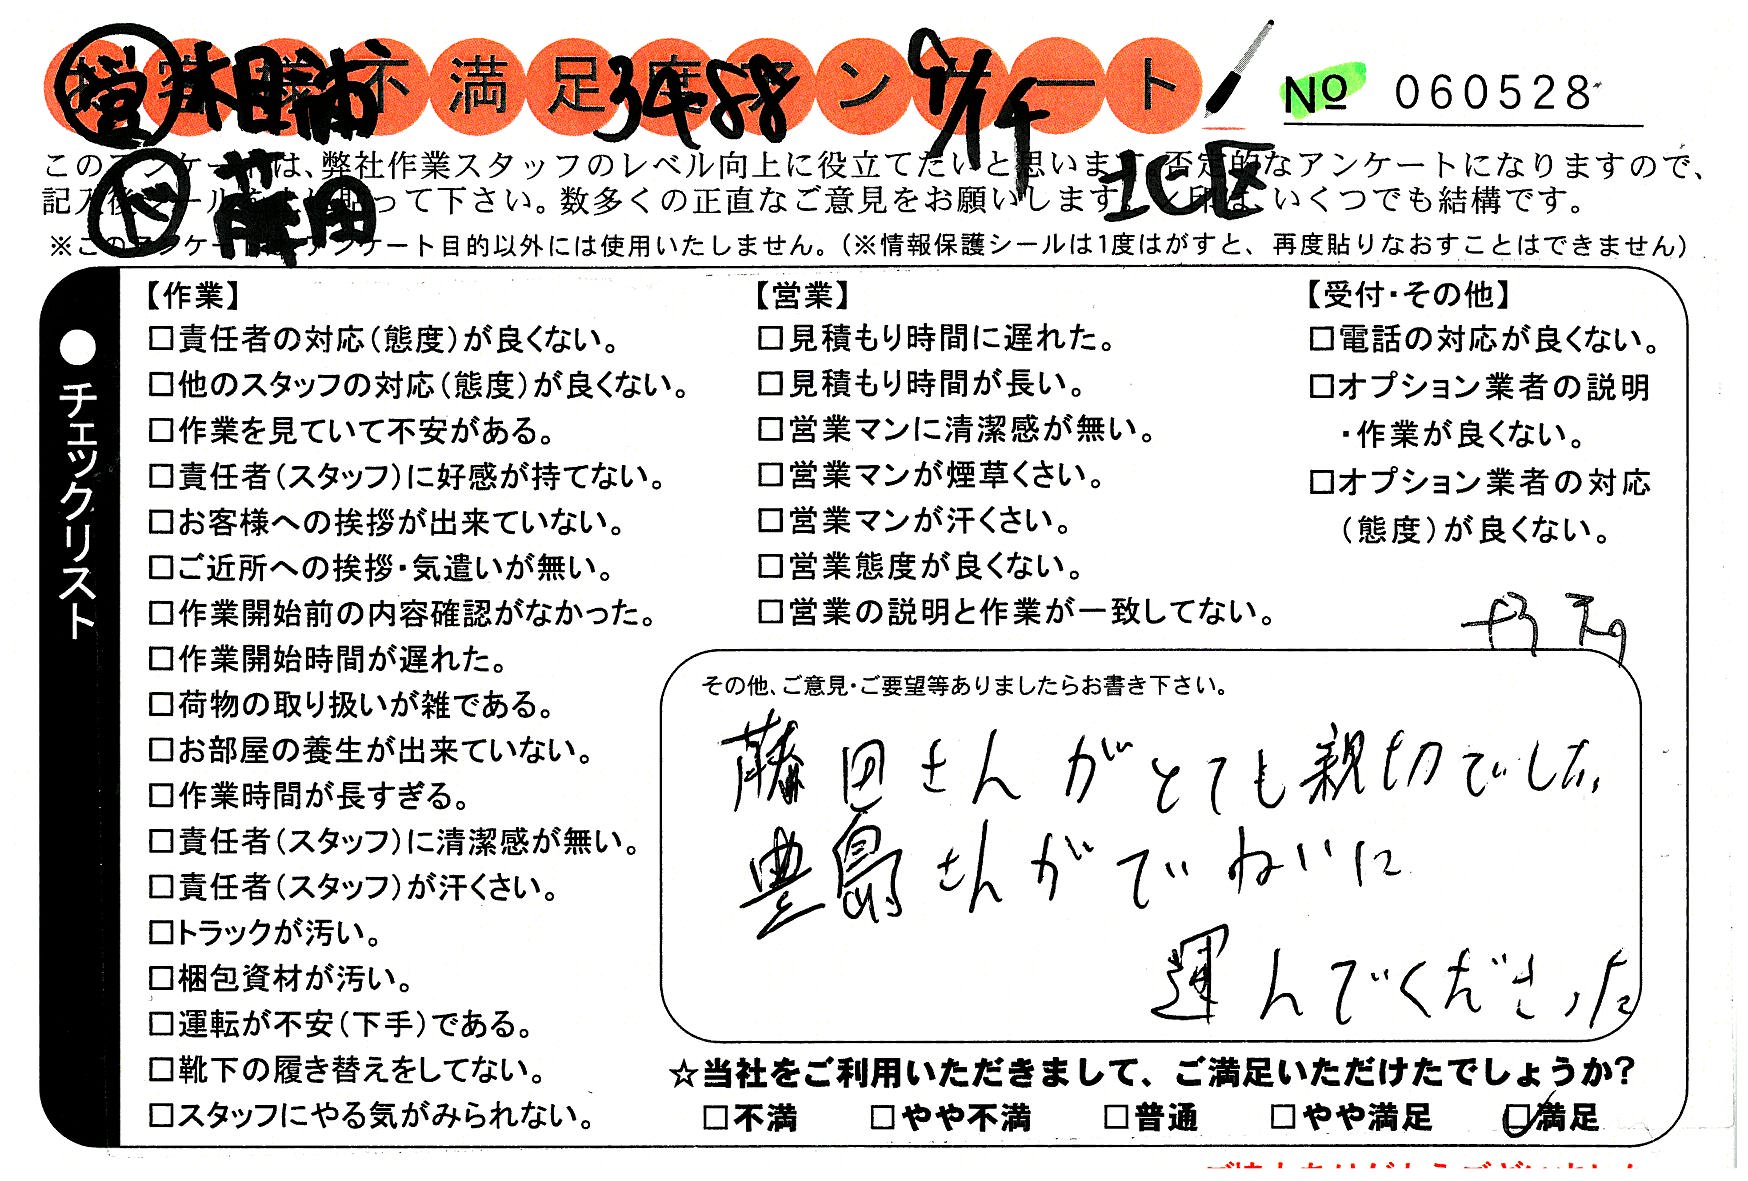 お客様不満足度アンケート
No 060528
営 木目浦 3488 9/14 北区
ド 藤田
このアンケートは、弊社作業スタッフのレベル向上に役立てたいと思います。否定的なアンケートになりますので、
記入後シールを貼って下さい。数多くの正直なご意見をお願いします。レ印は、いくつでも結構です。
※このアンケートはアンケート目的以外には使用いたしません。(※情報保護シールは1度はがすと、再度貼りなおすことはできません)
●チェックリスト
【作業】
□責任者の対応(態度)が良くない。
□他のスタッフの対応(態度)が良くない。
□作業を見ていて不安がある。
□責任者(スタッフ)に好感が持てない。
□お客様への挨拶が出来ていない。
□ご近所への挨拶・気遣いが無い。
□作業開始前の内容確認がなかった。
□作業開始時間が遅れた。
□荷物の取り扱いが雑である。
□お部屋の養生が出来ていない。
□作業時間が長すぎる。
□責任者(スタッフ)に清潔感が無い。
□責任者(スタッフ)が汗くさい。
□トラックが汚い。
□梱包資材が汚い。
□運転が不安(下手)である。
□靴下の履き替えをしてない。
□スタッフにやる気がみられない。
【営業】
□見積もり時間に遅れた。
□見積もり時間が長い。
□営業マンに清潔感が無い。
□営業マンが煙草くさい。
□営業マンが汗くさい。
□営業態度が良くない。
□営業の説明と作業が一致してない。
【受付・その他】
□電話の対応が良くない。
□オプション業者の説明
・作業が良くない。
□オプション業者の対応
(態度)が良くない。
その他、ご意見・ご要望等ありましたらお書き下さい。
藤田さんがとても親切でした。
豊島さんがていねいに
運んでくださった
☆当社をご利用いただきまして、ご満足いただけたでしょうか?
□不満 □やや不満 □普通 □やや満足 ☑満足